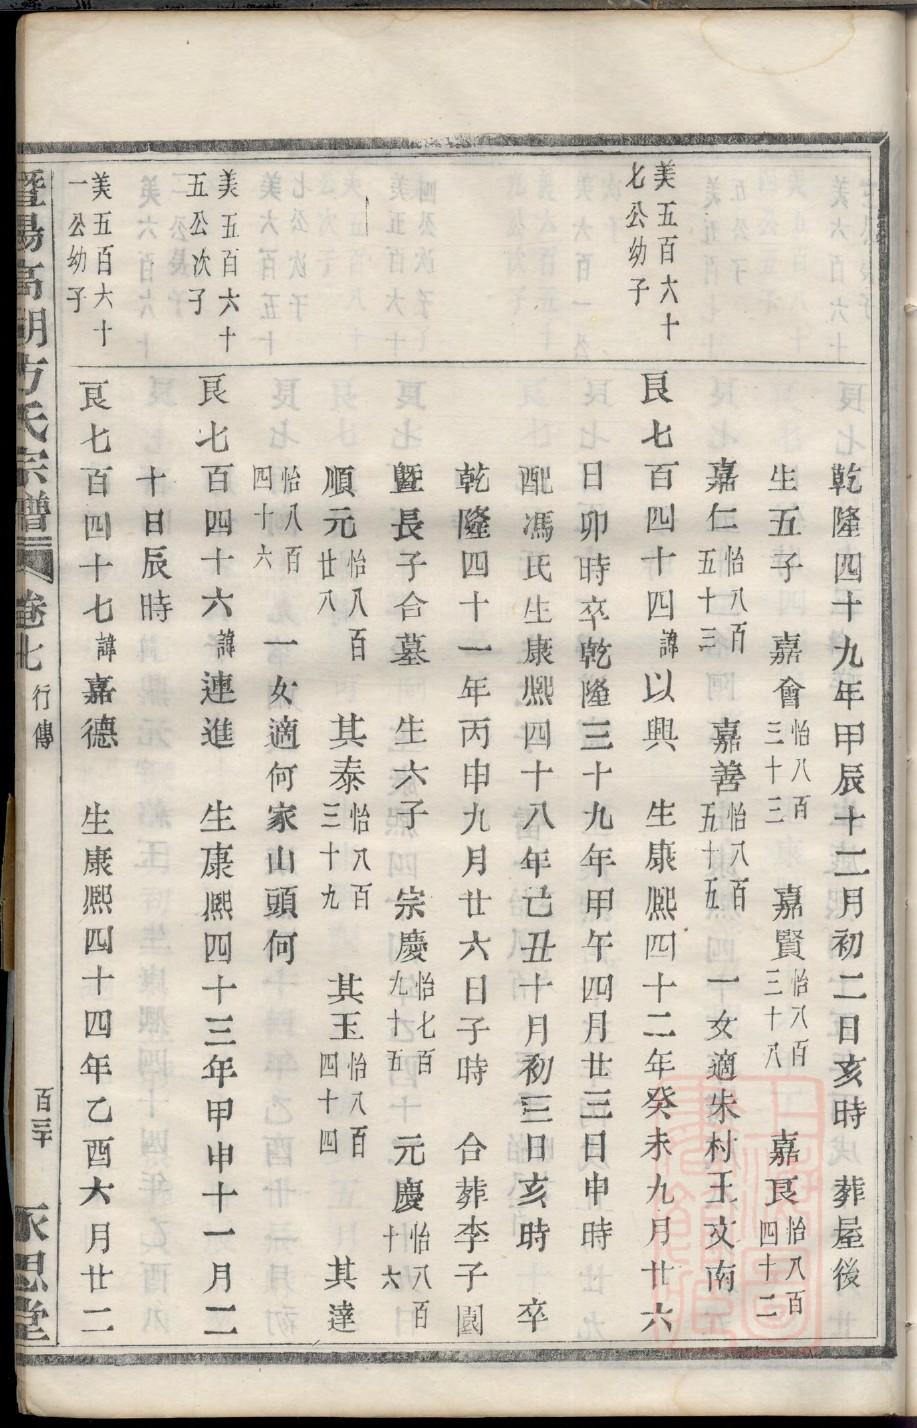 乾隆四十九年甲辰十二月初二日亥時　葬屋後
生五子　嘉會怡八百三十三　嘉賢怡八百三十八　嘉良怡八百四十二
嘉仁怡八百五十三　嘉善怡八百五十五　一女適朱村王文南
美五百六十七公幼子
良七百四十四諱以興　生康熙四十二年癸未九月廿六
日卯時卒乾隆三十九年甲午四月廿三日申時
配馮氏生康熙四十八年己丑十月初三日亥時　卒
乾隆四十一年丙申九月廿六日子時　合葬李子園
曁長子合墓　生六子　宗慶怡七百九十五　元慶怡八百十六
順元怡八百廿八　其泰怡八百三十九　其玉怡八百四十四　其達
怡八百四十六　一女適何家山頭何
美五百六十五公次子
良七百四十六諱連進　生康熙四十三年甲申十一月二
十日辰時
美五百六十一公幼子
良七百四十七諱嘉德　生康熙四十四年乙酉六月廿二
暨陽高湖方氏宗譜　卷七　行傳　百三十　永思堂